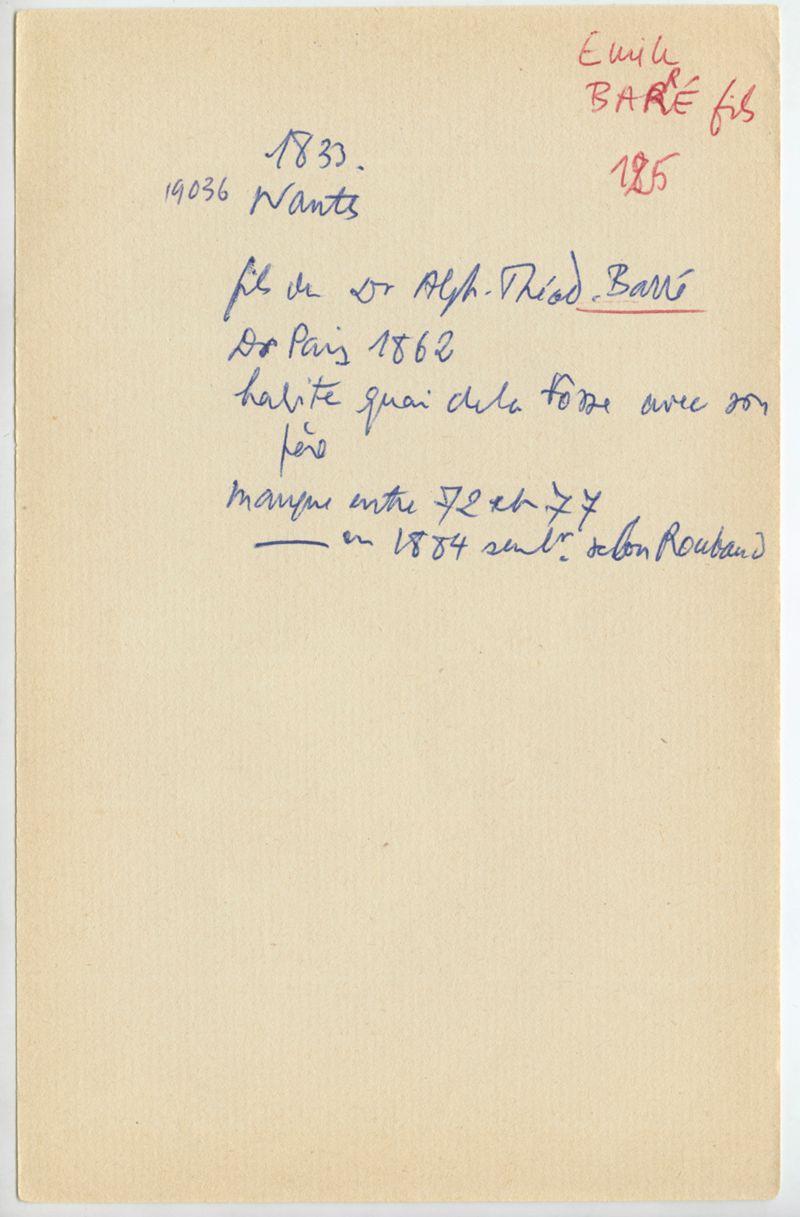 Emile
BARRÉ fils
185
1833.
19036 Nantes
fils du Dr Alph. Théod. Barré
Dr Paris 1862
habite quai de la Fosse avec son
père
manque entre 72 et 77
—— en 1884 seult. selon Roubaud